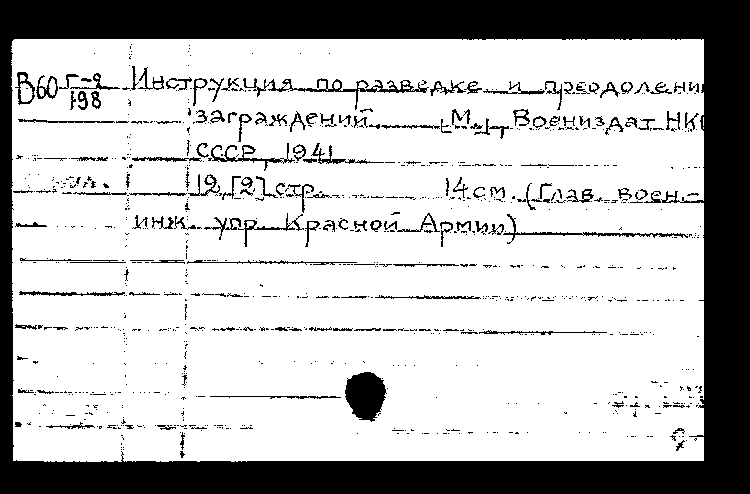 В60 Г-9/198 Инструкция по разведке и преодолени
заграждений. [М.], Воениздат НК
СССР, 1941
12,[2] стр. 14 см. (Глав. воен.-
инж. упр. Красной Армии)